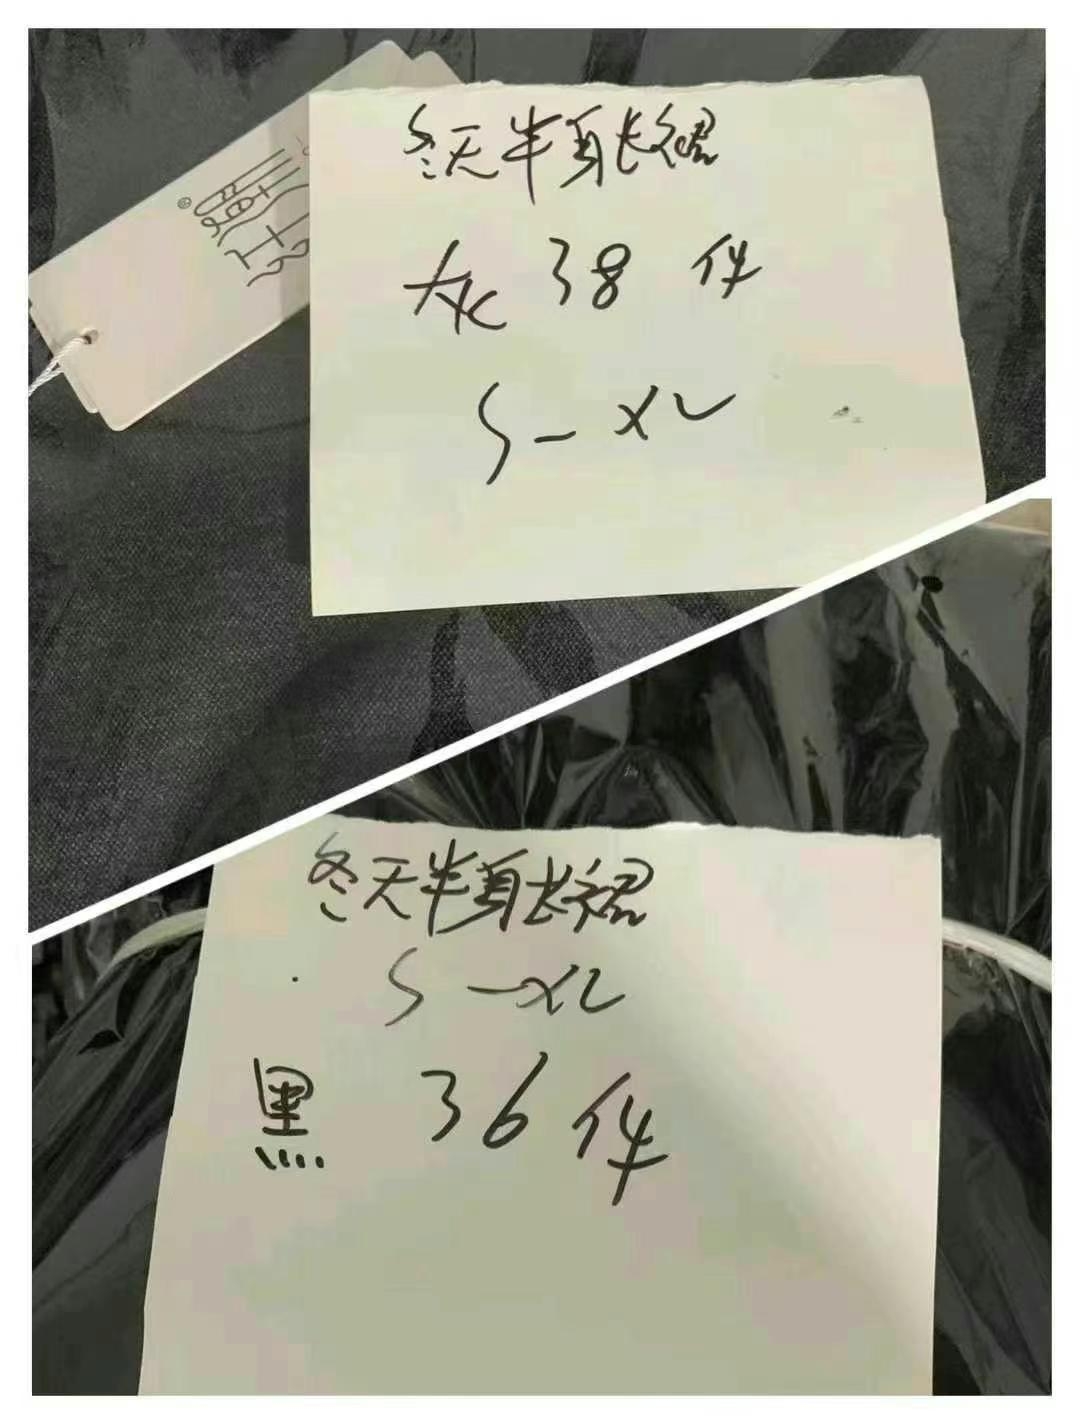 冬天半身长裙
灰 38 件
S-XL
冬天半身长裙
S-XL
黑 36件